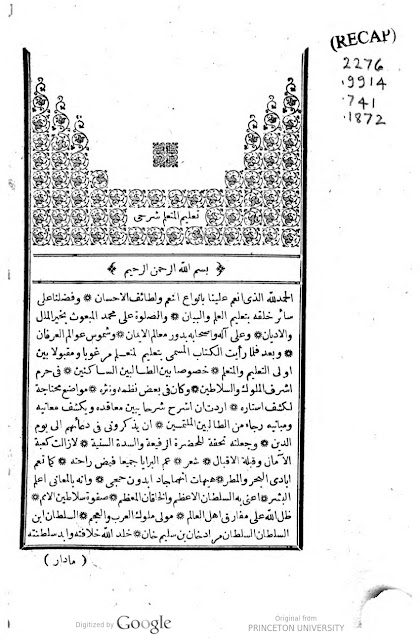 (RECAP)
2276
.9914
.741
.1872
تعليم المتعلم شرحى
بسم الله الرحمن الرحيم
الحمد لله الذى انعم علينا بانواع النعم ولطائف الاحسان * وفضلنا على
سائر خلقه بتعليم العلم والبيان * والصلوة على محمد المبعوث بخير الملل
والاديان * وعلى آله واصحابه بدور معالم الايمان * وشموس عوالم العرفان
* وبعد فلما رأيت الكتاب المسمى بتعليم المتعلم مرغوبا ومقبولا بين
اولى التعليم والتعلم * خصوصا بين الطالبين الساكنين * فى حرم
اشرف الملوك والسلاطين * وكان فى بعض نظمه ونثره * مواضع محتاجة
لكشف استاره * اردت ان اشرح شرحا يبين معاقده ويكشف معانيه
ومبانيه رجاء من الطالبين الملتمسين * ان يذكرونى فى دعائهم الى يوم
الدين * وجعلته تحفة للحضرة الرفيعة والسدة السنية * لازالت كعبة
الآمال وقبلة الاقبال * شعر * عم البرايا جميعا فيض راحته * كما تعم
ايادى البحر والمطر * هيهات انهما بدون حجبى * وانه بالمعانى اعلم
البشر * اعنى به السلطان الاعظم والخاقان المعظم * صفوة سلاطين الامم *
ظل الله على مفارق اهل العالم * مولى ملوك العرب والعجم * السلطان ابن
السلطان السلطان مراد خان بن سليم خان * خلد الله خلافته وابد سلطنته
( مادار )
Digitized by Google
Original from
PRINCETON UNIVERSITY